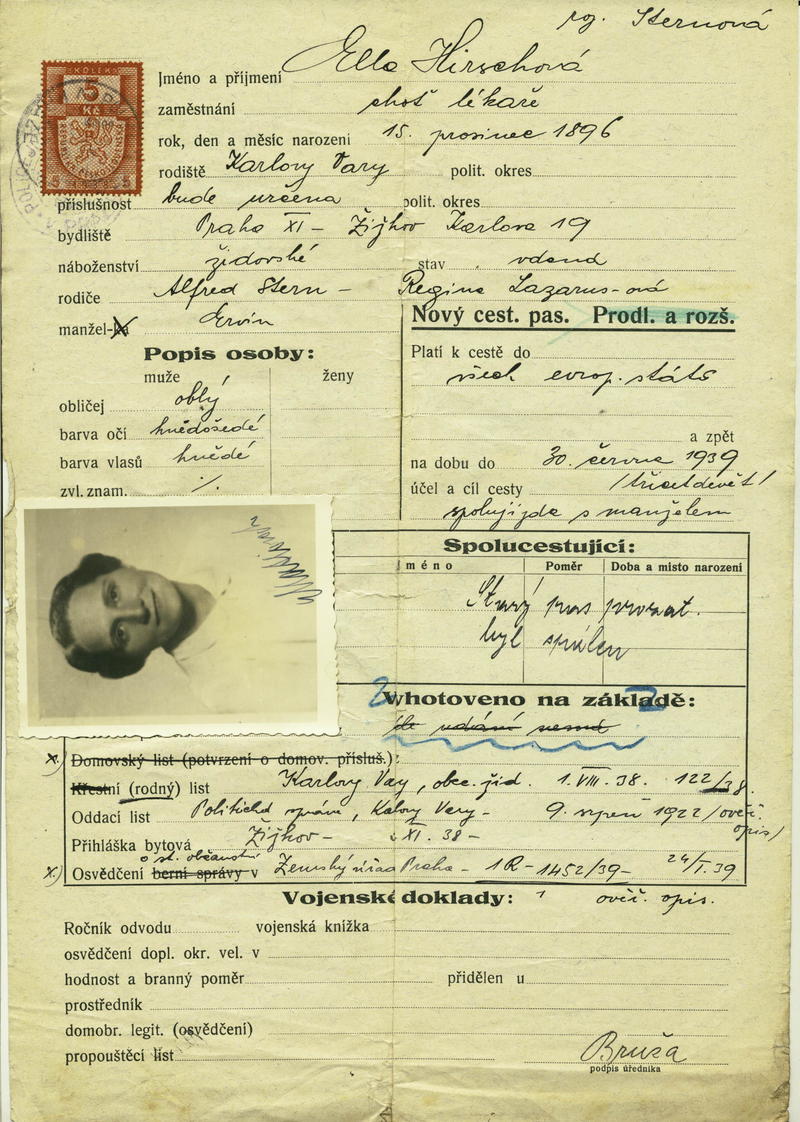 roz. Sternová
KOLEK
5
Kč
Jméno a příjmení Ella Hirschová
zaměstnání choť lékaře
rok, den a měsíc narození 15. prosinec 1896
rodiště Karlovy Vary polit. okres
příslušnost bude určena polit. okres
bydliště Praha XI – Žižkov Karlova 19
náboženství židovské stav vdaná
rodiče Alfred Stern – Regina Lazarus-ová
manžel-ka Ervín
Nový cest. pas. Prodl. a rozš.
Popis osoby:
muže ženy
obličej oblý
barva očí hnědošedé
barva vlasů hnědé
zvl. znam. ·/.
Platí k cestě do
všech evrop. států
a zpět
na dobu do 30. června 1939
/třicetdevět/
účel a cíl cesty
spolujízda s manželem
Spolucestující:
Jméno Poměr Doba a místo narození
Starý pas prozat.
byl spálen
Vyhotoveno na základě:
x.) Domovský list (potvrzení o domov. přísluš.):
Křestní (rodný) list Karlovy Vary, obec. žid. 1. VIII. 38. 122/38.
Oddací list Politická správa, Karlovy Vary – 9. srpen 1922 /ověř. opis/
Přihláška bytová Žižkov – XI. 38 –
o st. občanství
x.) Osvědčení berní správy v Zemský úřad Praha – 1R – 1452/39 – 24/I. 39
Vojenské doklady: ověř. opis.
Ročník odvodu vojenská knížka
osvědčení dopl. okr. vel. v
hodnost a branný poměr přidělen u
prostředník
domobr. legit. (osvědčení)
propouštěcí list
Bruža
podpis úředníka